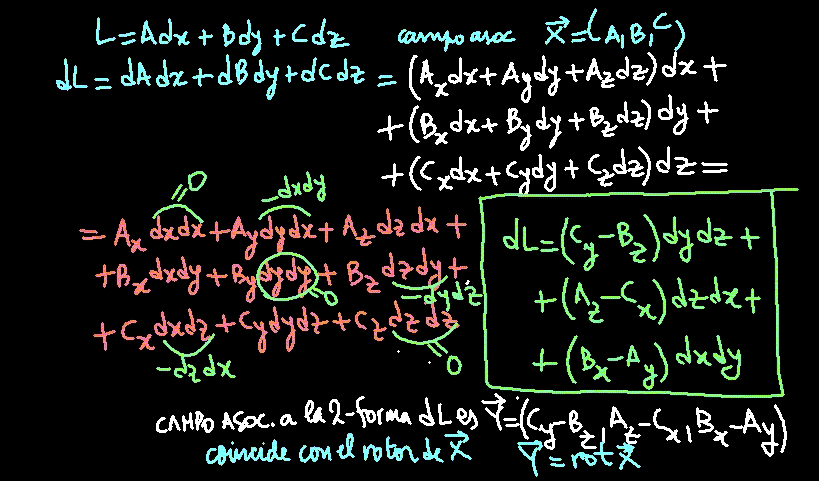 L=Adx+Bdy+Cdz campo asoc X⃗=(A,B,C)
dL=dAdx+dBdy+dCdz=(Aₓdx+A_ydy+A_zdz)dx+
+(Bₓdx+B_ydy+B_zdz)dy+
+(Cₓdx+C_ydy+C_zdz)dz=
=0 -dxdy
=Aₓdxdx+A_ydydx+A_zdzdx+
+Bₓdxdy+B_ydydy+B_zdzdy+
=0 -dydz
+Cₓdxdz+C_ydydz+C_zdzdz
-dzdx =0
dL=(C_y-B_z)dydz+
+(A_z-Cₓ)dzdx+
+(Bₓ-A_y)dxdy
CAMPO ASOC. a la 2-forma dL es Y⃗=(C_y-B_z,A_z-Cₓ,Bₓ-A_y)
coincide con el rotor de X⃗ Y⃗=rot X⃗